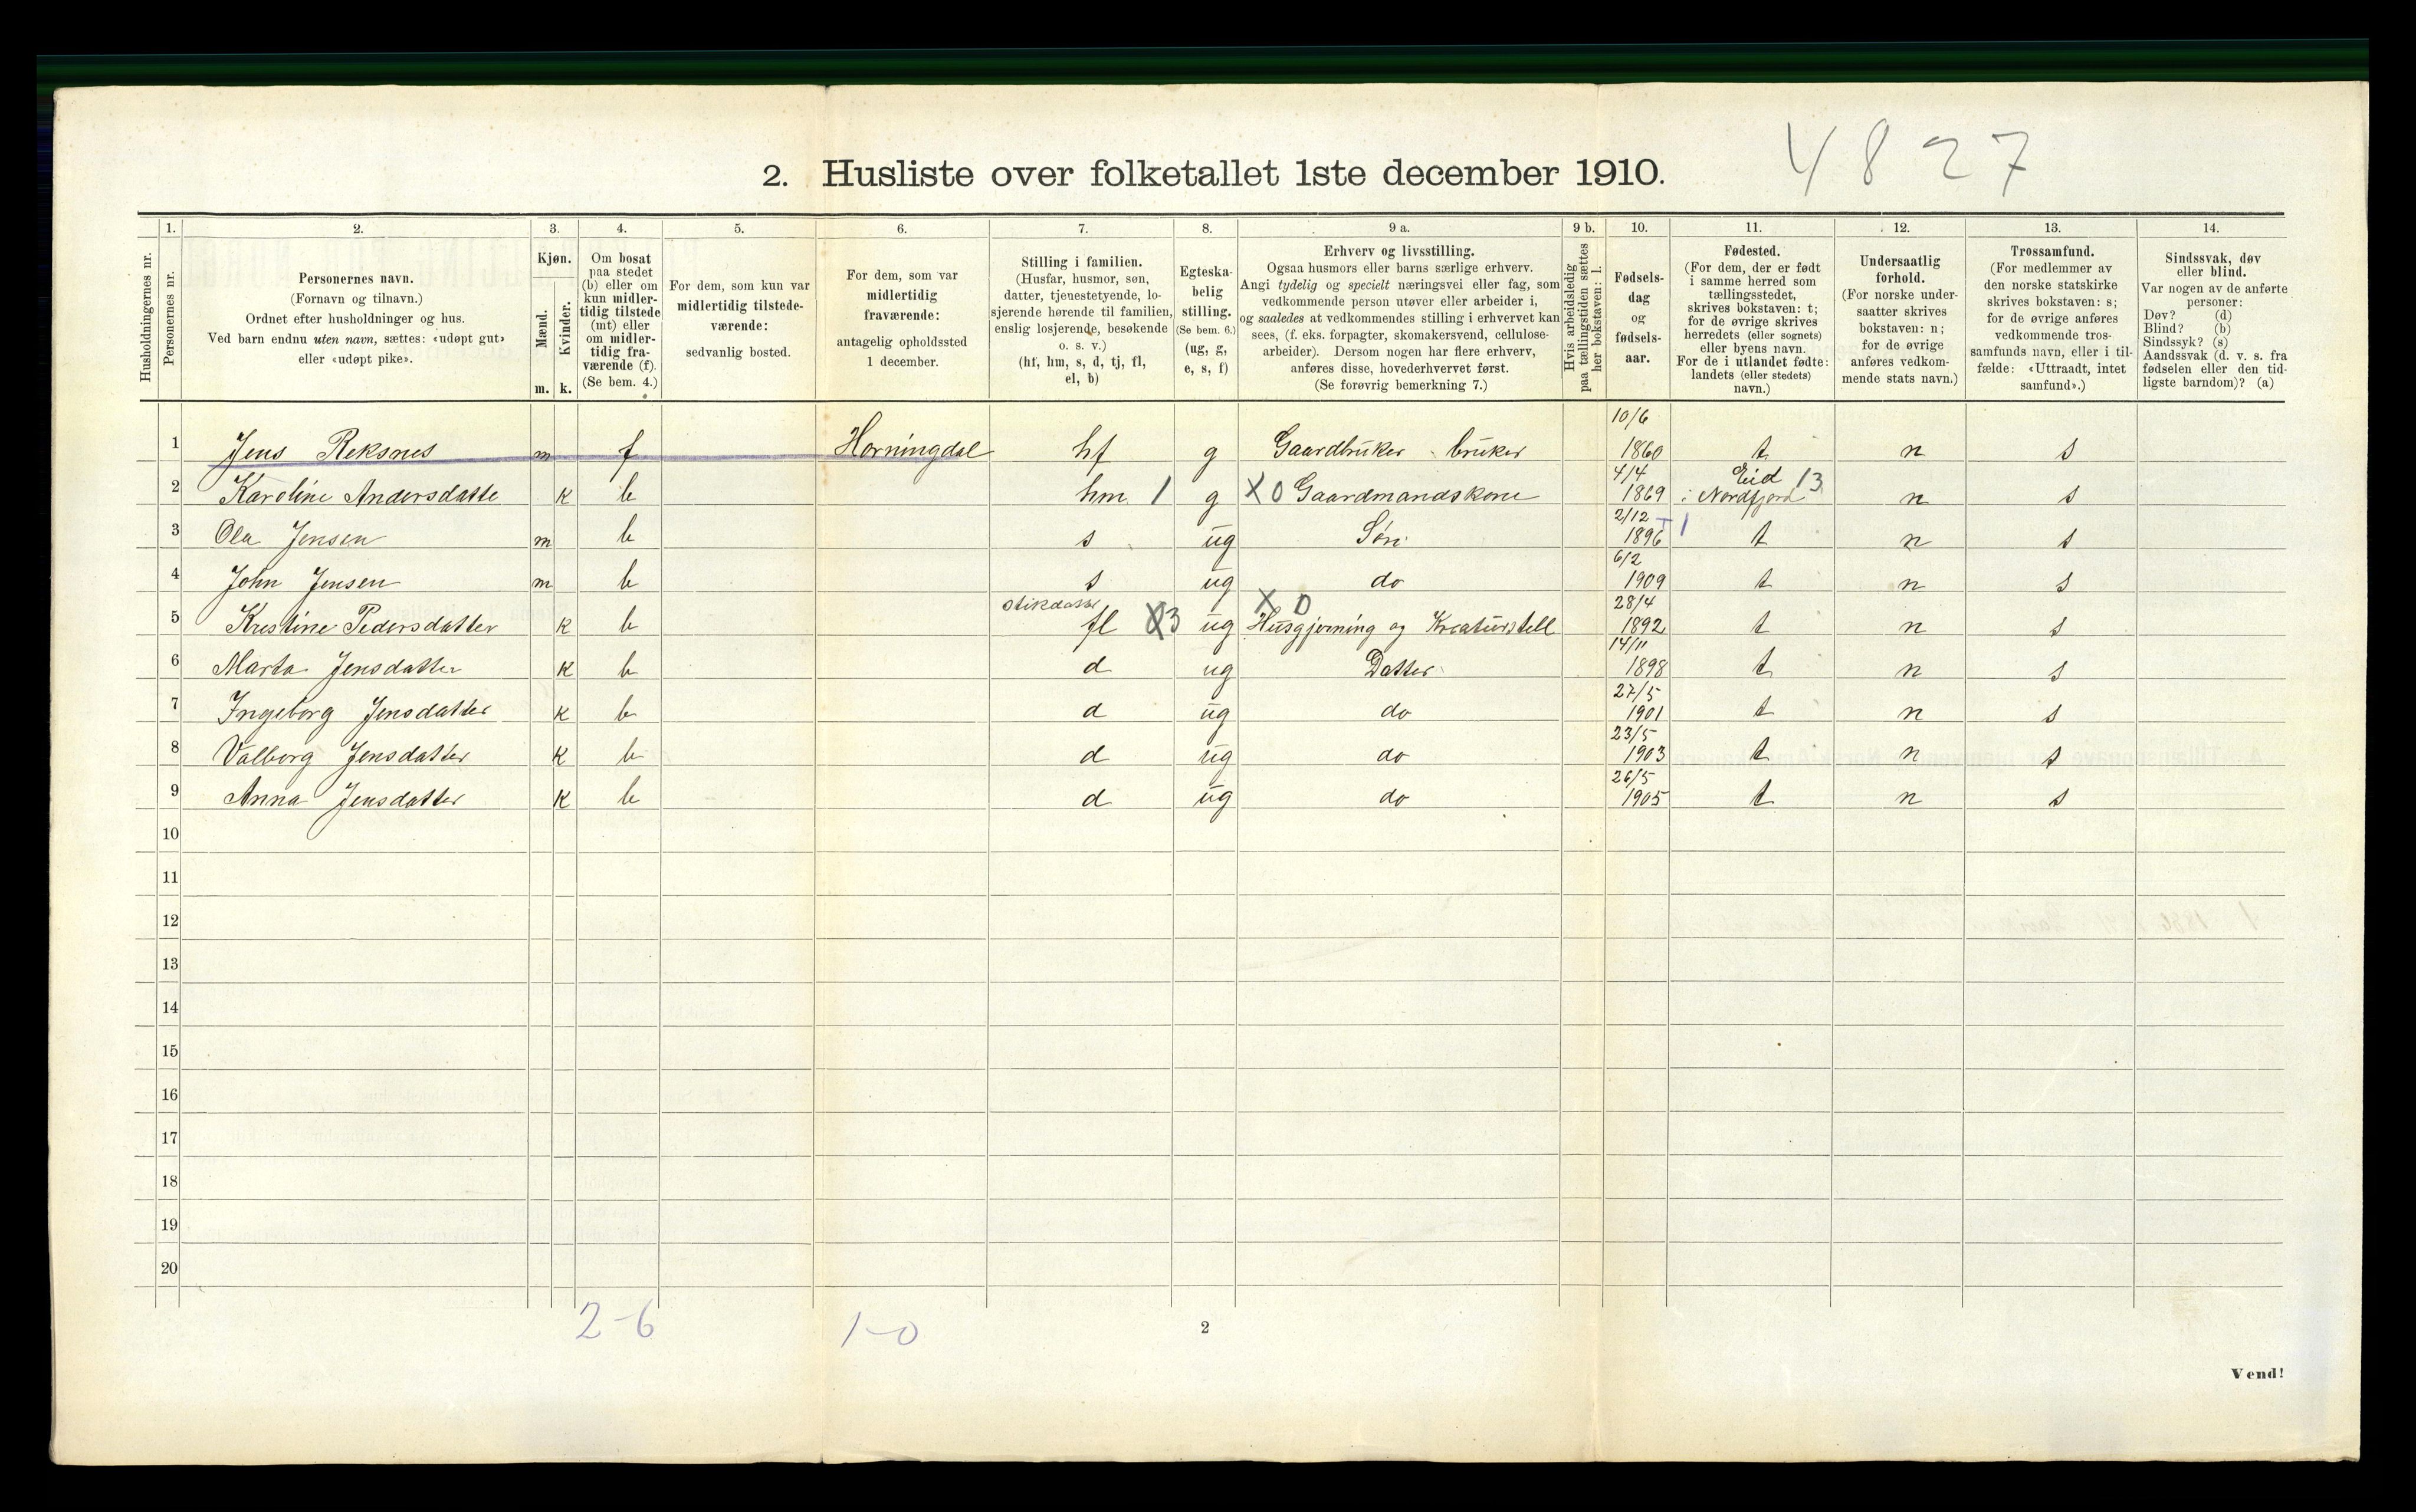 4827
2. Husliste over folketallet 1ste december 1910.
Husholdningernes nr.
1.
Personernes nr.
2.
Personernes navn.
(Fornavn og tilnavn.)
Ordnet efter husholdninger og hus.
Ved barn endnu uten navn, sættes: «udøpt gut»
eller «udøpt pike».
3.
Kjøn.
Mænd.
Kvinder.
m. k.
4.
Om bosat
paa stedet
(b) eller om
kun midler-
tidig tilstede
(mt) eller
om midler-
tidig fra-
værende (f).
(Se bem. 4.)
5.
For dem, som kun var
midlertidig tilstede-
værende:
sedvanlig bosted.
6.
For dem, som var
midlertidig
fraværende:
antagelig opholdssted
1 december.
7.
Stilling i familien.
(Husfar, husmor, søn,
datter, tjenestetyende, lo-
sjerende hørende til familien,
enslig losjerende, besøkende
o. s. v.)
(hf, hm, s, d, tj, fl,
el, b)
8.
Egteska-
belig
stilling.
(Se bem. 6.)
(ug, g,
e, s, f)
9 a.
Erhverv og livsstilling.
Ogsaa husmors eller barns særlige erhverv.
Angi tydelig og specielt næringsvei eller fag, som
vedkommende person utøver eller arbeider i,
og saaledes at vedkommendes stilling i erhvervet kan
sees, (f. eks. forpagter, skomakersvend, cellulose-
arbeider). Dersom nogen har flere erhverv,
anføres disse, hovederhvervet først.
(Se forøvrig bemerkning 7.)
9 b.
Hvis arbeidsledig
paa tællingstiden sættes
her bokstaven: l.
10.
Fødsels-
dag
og
fødsels-
aar.
11.
Fødested.
(For dem, der er født
i samme herred som
tællingsstedet,
skrives bokstaven: t;
for de øvrige skrives
herredets (eller sognets)
eller byens navn.
For de i utlandet fødte:
landets (eller stedets)
navn.)
12.
Undersaatlig
forhold.
(For norske under-
saatter skrives
bokstaven: n;
for de øvrige
anføres vedkom-
mende stats navn.)
13.
Trossamfund.
(For medlemmer av
den norske statskirke
skrives bokstaven: s;
for de øvrige anføres
vedkommende tros-
samfunds navn, eller i til-
fælde: «Uttraadt, intet
samfund».)
14.
Sindssvak, døv
eller blind.
Var nogen av de anførte
personer:
Døv? (d)
Blind? (b)
Sindssyk? (s)
Aandssvak (d. v. s. fra
fødselen eller den tid-
ligste barndom)? (a)
1 Jens Reksnes m f Horningdal hf g Gaardbruker bruker 10/6 1860 t n s
2 Karoline Andersdatte k b hm 1 g X 0 Gaardmandskone 4/4 1869 Eid i Nordfjord 13 n s
3 Ola Jensen m b s ug Søn 2/12 1896 t n s
4 John Jensen m b s ug do 6/2 1909 t n s
5 Kristine Pedersdatter k b fl 3 ug X 0 Husgjerning og Kreaturstell 28/4 1892 t n s
6 Marta Jensdatter k b d ug Datter 14/11 1898 t n s
7 Ingeborg Jensdatter k b d ug do 27/5 1901 t n s
8 Valborg Jensdatter k b d ug do 23/5 1903 t n s
9 Anna Jensdatter k b d ug do 26/5 1905 t n s
10
11
12
13
14
15
16
17
18
19
20
2-6 1-0
2
Vend!